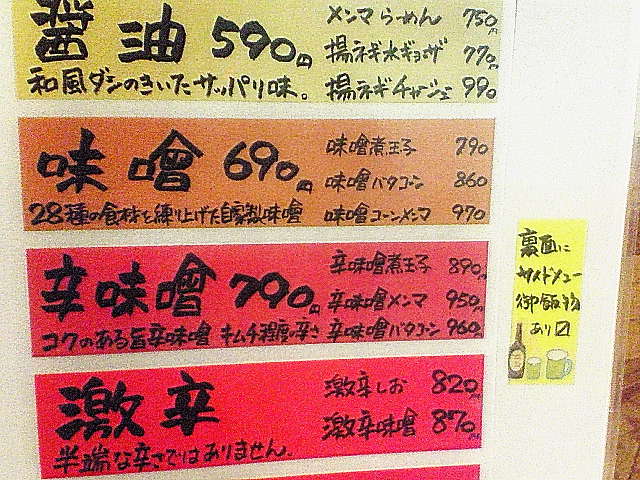 醤油 590円
和風ダシのきいたサッパリ味。
メンマらーめん 750円
揚ネギ水ギョーザ 770円
揚ネギチャーシュー 990
味噌 690円
28種の食材を練り上げた自家製味噌
味噌煮玉子 790
味噌バタコーン 860
味噌コーンメンマ 970
辛味噌 790円
コクのある旨辛味噌 キムチ程度の辛さ
辛味噌煮玉子 890円
辛味噌メンマ 950円
辛味噌バタコーン 960円
激辛
半端な辛さではありません。
激辛しお 820円
激辛味噌 870円
裏面に
サイドメニュー
御飯物
あり〼